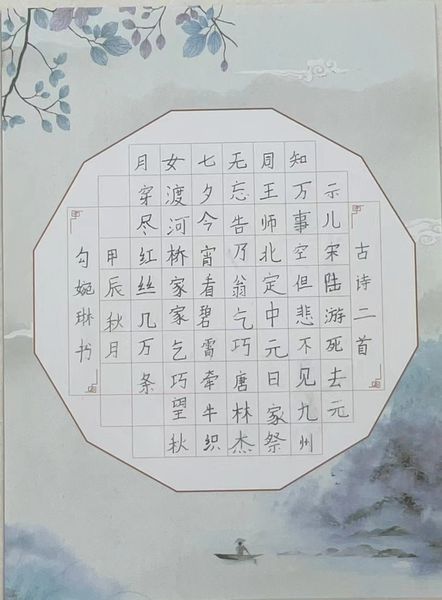 古诗二首
示儿宋陆游死去元
知万事空但悲不见九州
同王师北定中元日家祭
无忘告乃翁气巧唐林杰
七夕今宵看碧霄牵牛织
女渡河桥家家乞巧望秋
月穿尽红丝几万条
甲辰秋月
勾婉琳书